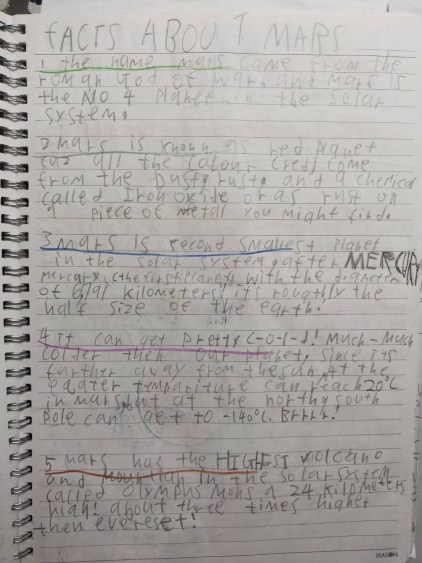 FACTS ABOUT MARS
1 the name mars came from the
roman God of war, and mars is
the NO 4 Planet in the solar
system.
2 Mars is known as red planet
cuz all the colour (red) come
from the dust, rust, and a chemical
called Iron oxide or as rust on
a piece of metal you might find.
3 Mars is second smallest planet
in the solar system, after MERCURY
mercury (the first planet) with the diameter
of 6791 kilometers, it's roughly the
half size of the earth!
4 It can get pretty C-o-l-d! Much-Much
colder then our planet, since it's
further away from the sun. At the
equater tempariture can reach 20°C
in mars but at the north y south
Pole can get to -140°C. Brrrr!
5 mars has the HIGHEST volcano
and mountion in the solar system
called Olympus mons a 24 kilometers
high! about three times higher
then evereset!